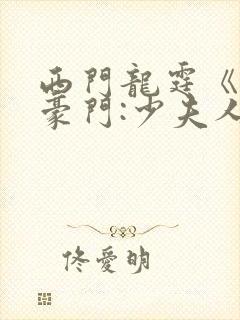 西門龍霆《
豪門:少夫人
佟愛明